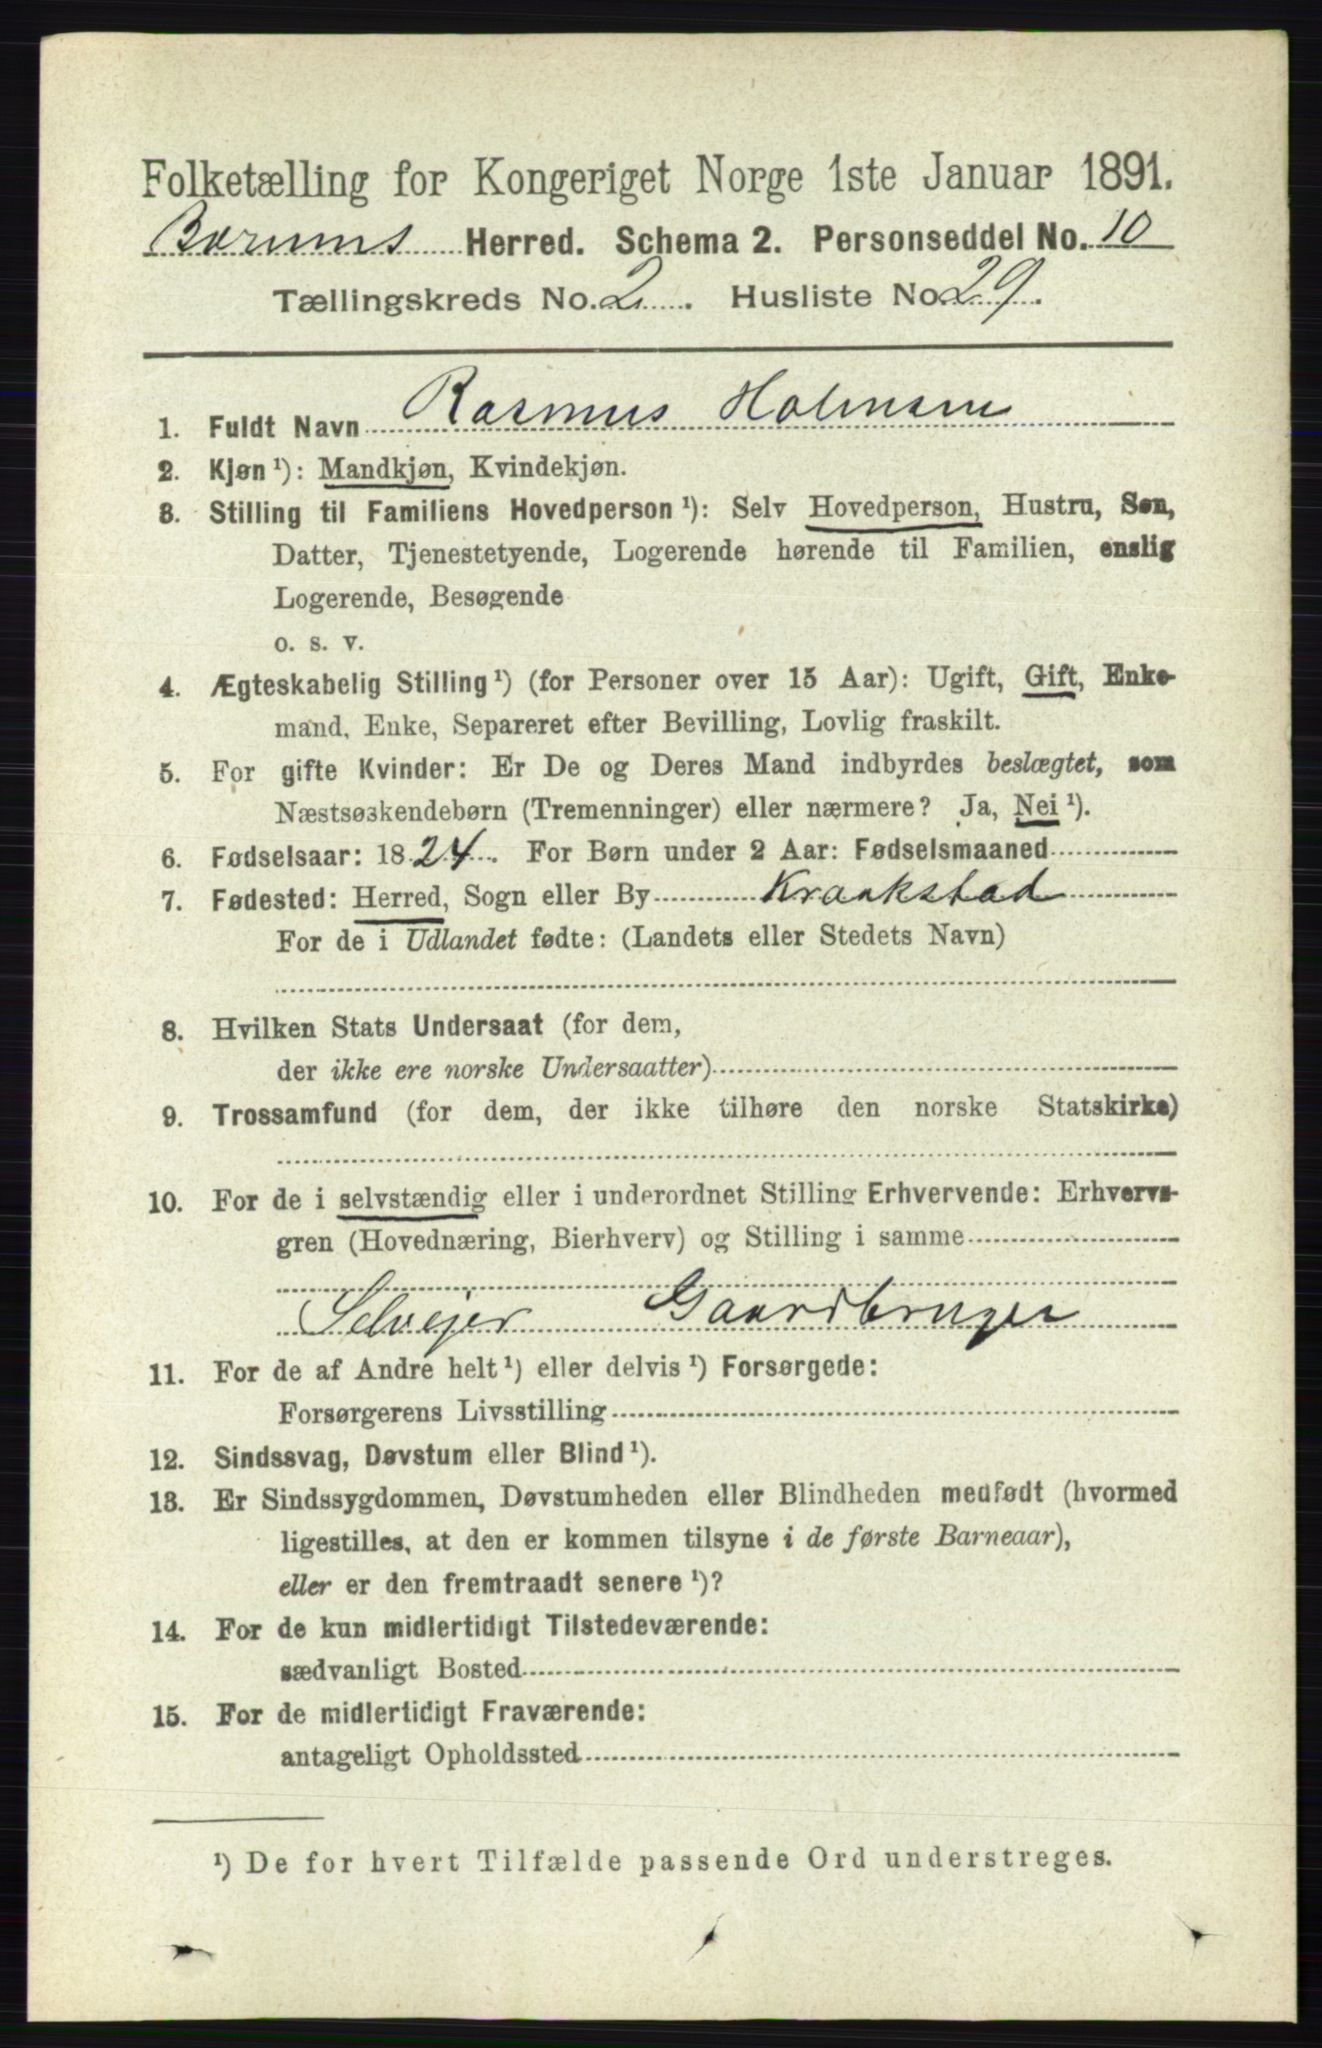 Folketælling for Kongeriget Norge 1ste Januar 1891.
Bærums Herred. Schema 2. Personseddel No. 10
Tællingskreds No. 2. Husliste No. 29.
1. Fuldt Navn Rasmus Holmsen
2. Kjøn ¹): Mandkjøn, Kvindekjøn.
3. Stilling til Familiens Hovedperson ¹): Selv Hovedperson, Hustru, Søn,
Datter, Tjenestetyende, Logerende hørende til Familien, enslig
Logerende, Besøgende
o. s. v.
4. Ægteskabelig Stilling ¹) (for Personer over 15 Aar): Ugift, Gift, Enke-
mand, Enke, Separeret efter Bevilling, Lovlig fraskilt.
5. For gifte Kvinder: Er De og Deres Mand indbyrdes beslægtet, som
Næstsøskendebørn (Tremenninger) eller nærmere? Ja, Nei ¹).
6. Fødselsaar: 1824. For Børn under 2 Aar: Fødselsmaaned
7. Fødested: Herred, Sogn eller By Kraakstad
For de i Udlandet fødte: (Landets eller Stedets Navn)
8. Hvilken Stats Undersaat (for dem,
der ikke ere norske Undersaatter)
9. Trossamfund (for dem, der ikke tilhøre den norske Statskirke)
10. For de i selvstændig eller i underordnet Stilling Erhvervende: Erhvervs-
gren (Hovednæring, Bierhverv) og Stilling i samme
Selvejer Gaardbruger
11. For de af Andre helt ¹) eller delvis ¹) Forsørgede:
Forsørgerens Livsstilling
12. Sindssvag, Døvstum eller Blind ¹).
13. Er Sindssygdommen, Døvstumheden eller Blindheden medfødt (hvormed
ligestilles, at den er kommen tilsyne i de første Barneaar),
eller er den fremtraadt senere ¹)?
14. For de kun midlertidigt Tilstedeværende:
sædvanligt Bosted
15. For de midlertidigt Fraværende:
antageligt Opholdssted
¹) De for hvert Tilfælde passende Ord understreges.